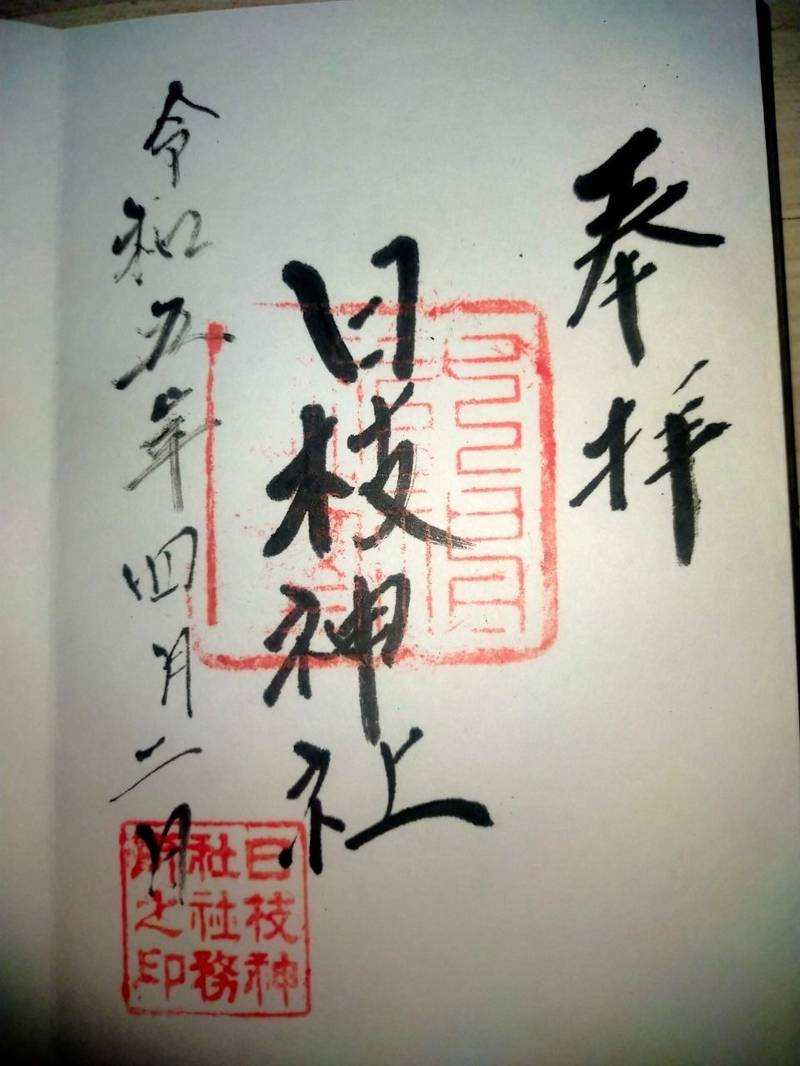 奉拝
日枝神社
令和五年四月二日
日枝神
社社務
所之印